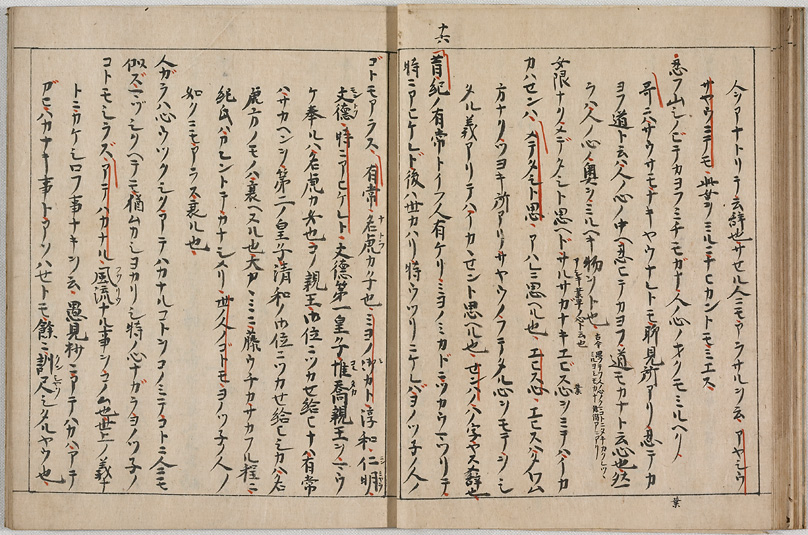 人ヲアナトリテ云辞也サセル人ニモアラサルヲ云アヤシウ
サヤウニテモ
忍フ山シノヒテカヨフミチモガナ人ノ心ノオクモミルヘク
哥ニハサウサモナキヤウナレトモ所見所アリ忍テカ
ヨフ道ト云ハ人ノ心ノ中ヘ忍ヒテカヨフ道モカナト云心也然
ラハ人ノ心ノ奥ヲミルヘキ物ヲト也
女限ナクメデタシト思ヘトサルサカナキエビス心ヲミテハイカ
カハセンハメテタシト思アハレニ思ヘル也エビス心エビスハタケク
方ナリツヨキ所アリサヤウノフテタル心ヲモテヲシ
タル義アリテイカヽセント思ヘル也センハノハノ字ヤスメ辞也
十六
昔紀ノ有常トイフ人有ケリミヨノミカドニツカウマツリテ
時ニアヒケレド後ハ世カハリ時ウツリニケレバヨノツ子ノ人ノ
ゴトモアラス有常ハ名虎カ子也ミヨノ御カト淳和仁明
文徳時ニアヒケレト文徳第一皇子惟喬親王ヲマウ
ケ奉ルハ名虎カ女也ソノ親王御位ニツカセ給ヒナハ有常
ハサカヘンヲ第二ノ皇子清和ノ御位ニツカせ給ヒシカハ名
虎方ノモノハ衰ヘスル也
紀氏ハカレントテカナシメリ世ノ人ノゴトモヨノツ子ノ人ノ
如クニモアラス衰ル也
人ガラハ心ウツクシクアテハカナルコトヲコノミテコト人ニモ
似ズマツシクヘテモ猶ムカシヨカリシ時ノ心ナガラヨノツ子ノ
コトモシラズアテハカナル風流ナル事ヲコノム也世上ノ義ナ
トニカケシロフ事ナキヲ云愚見抄ニアテハカハアテ
ガヒハカナキ事トアソハセトモ餘ニ訓尺シタルヤウ也